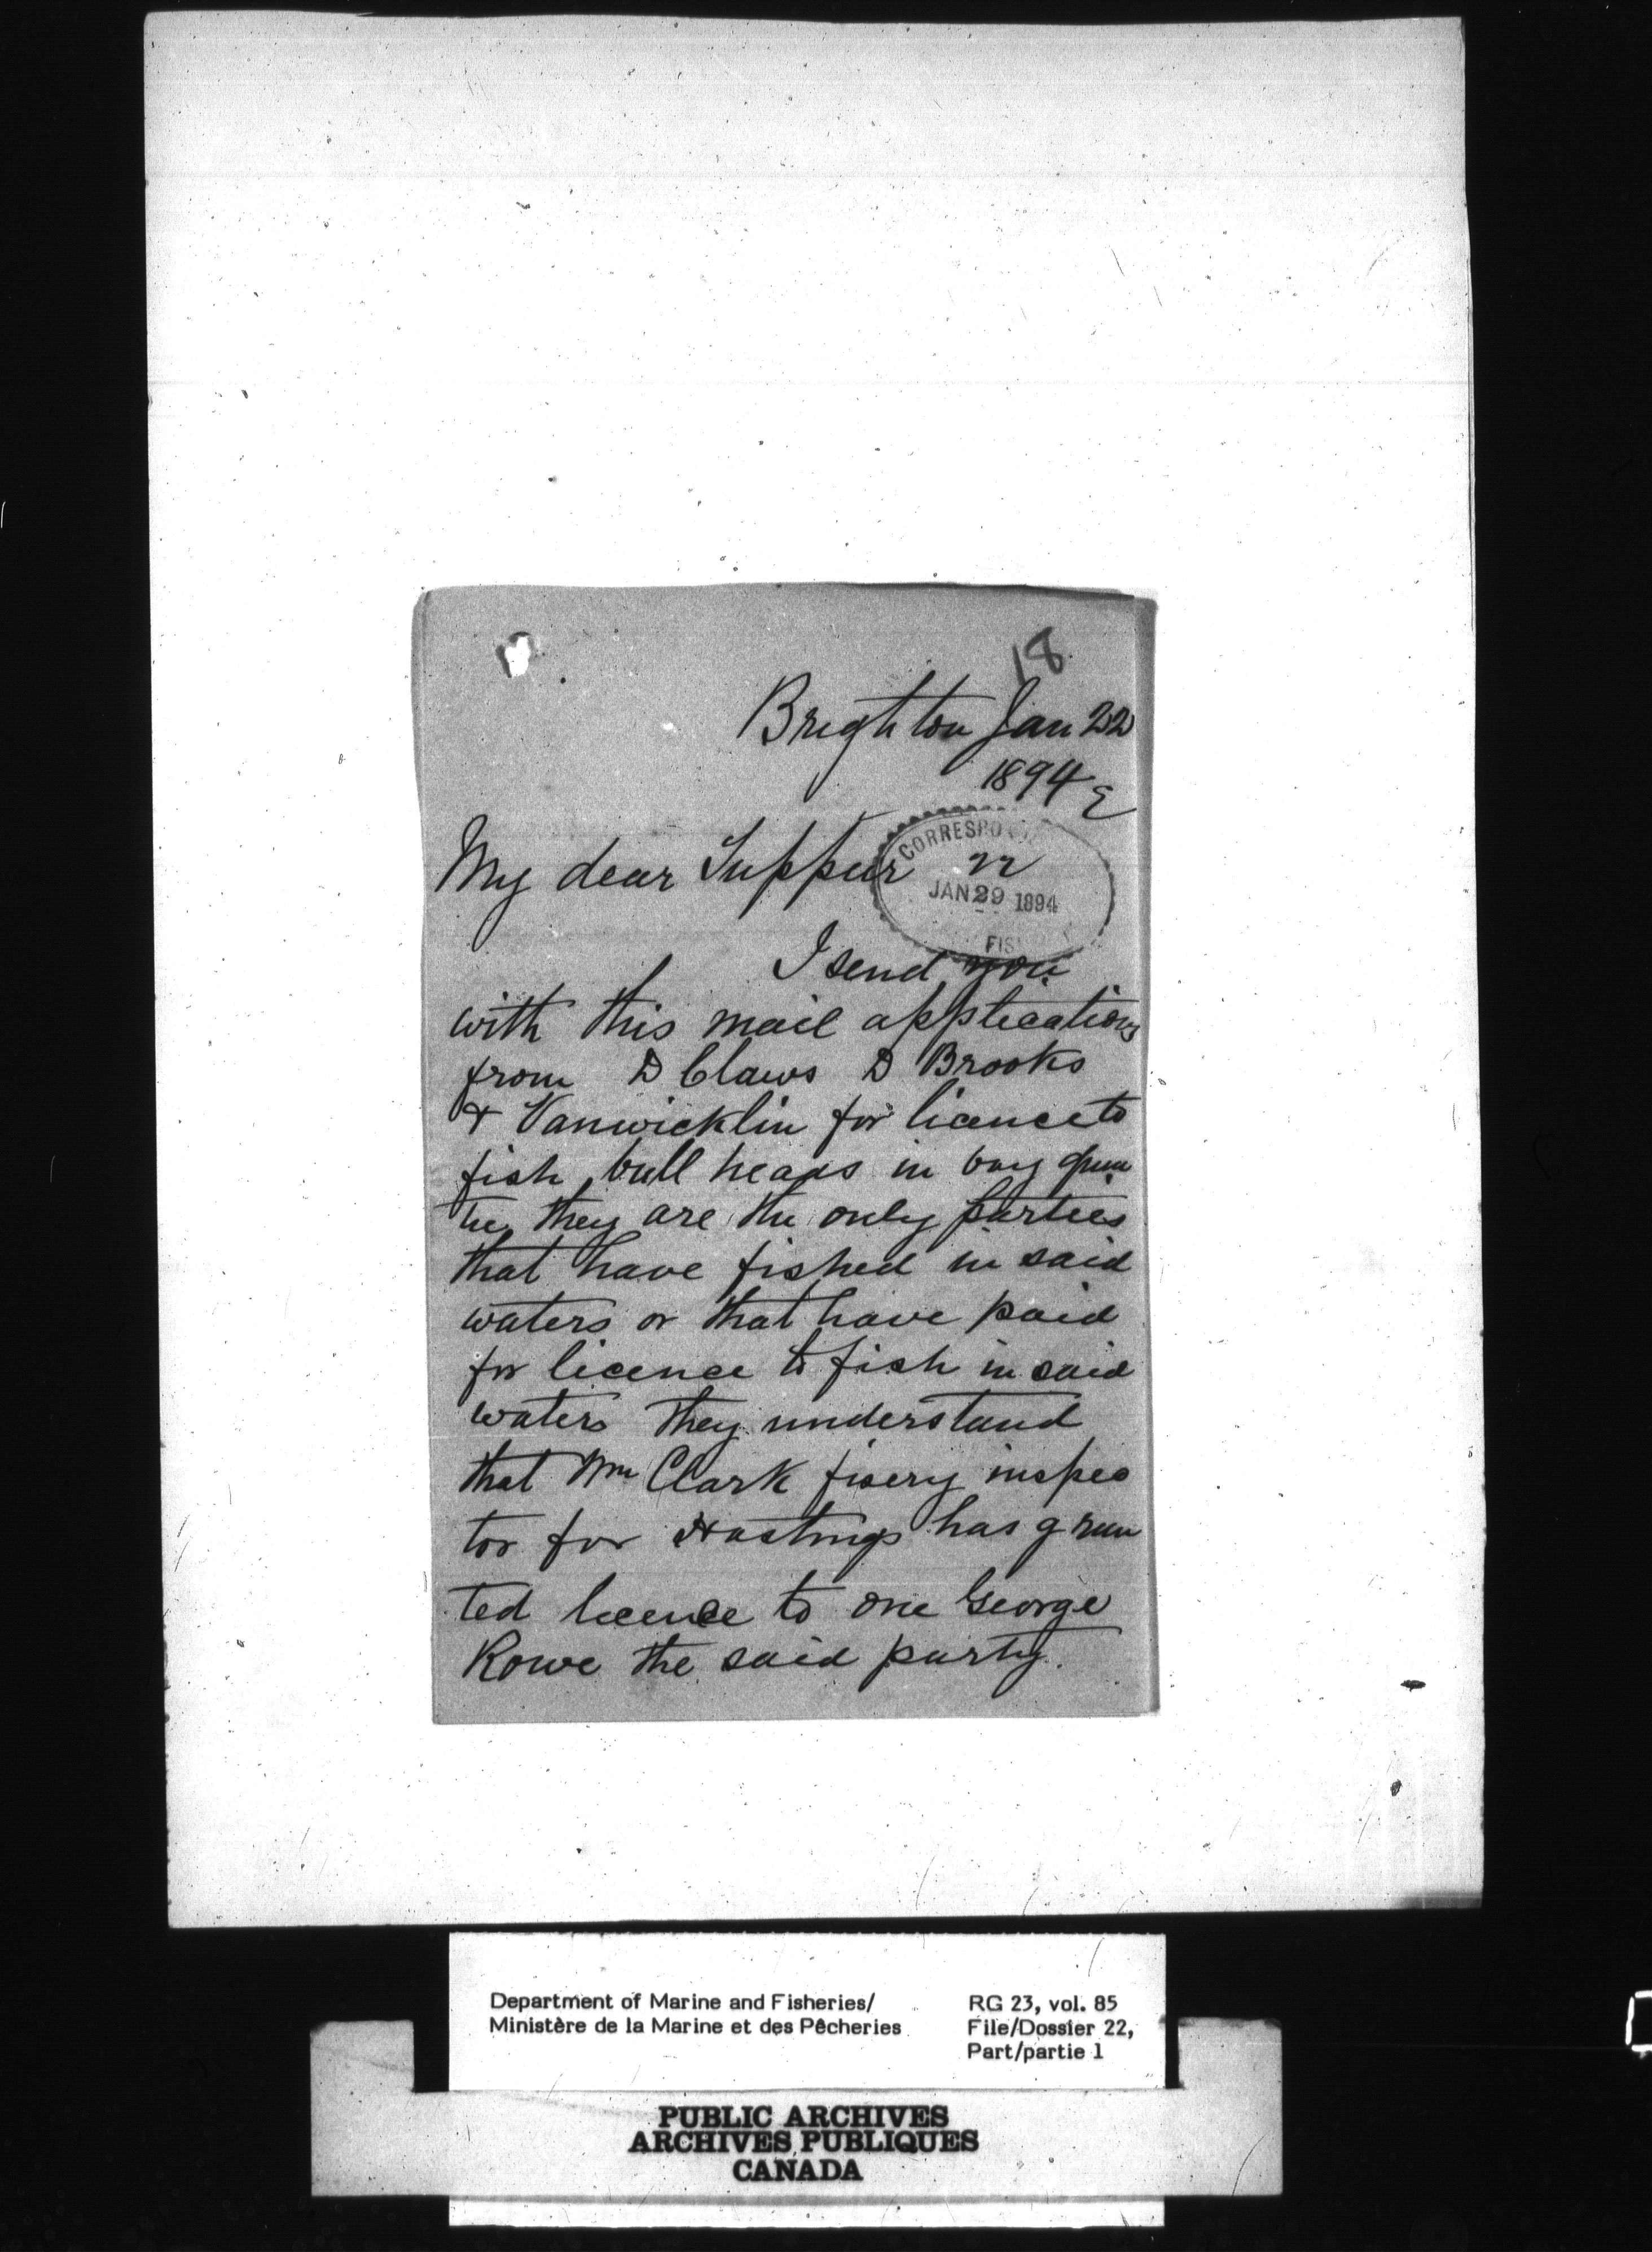 18
Brighton Jan 22
1894
My dear Tuppur
CORRESPO
22
JAN 29 1894
FIS
I send you
with this mail applications
from D Claws D Brooks
& Vanwicklin for licence to
fish bull heads in bay quin
te they are the only parties
that have fished in said
waters or that have paid
for licence to fish in said
waters they understand
that Wm Clark fisery inspec
tor for Hastings has gran
ted licence to one George
Rowe the said party.
Department of Marine and Fisheries/
Ministère de la Marine et des Pêcheries
RG 23, vol. 85
File/Dossier 22,
Part/partie 1
PUBLIC ARCHIVES
ARCHIVES PUBLIQUES
CANADA